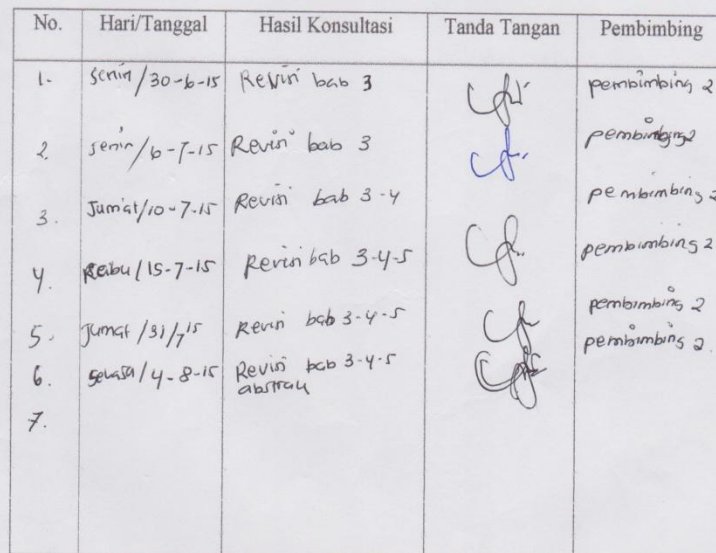 No. Hari/Tanggal Hasil Konsultasi Tanda Tangan Pembimbing
1. Senin/30-6-15 Revisi bab 3 pembimbing 2
2. Senin/6-7-15 Revisi bab 3 pembimbing 2
3. Jumat/10-7-15 Revisi bab 3-4 pembimbing 2
4. Rabu/15-7-15 Revisi bab 3-4-5 pembimbing 2
5. Jumat/31/7/15 Revisi bab 3-4-5 pembimbing 2
6. Selasa/4-8-15 Revisi bab 3-4-5 pembimbing 2
abstrak
7.